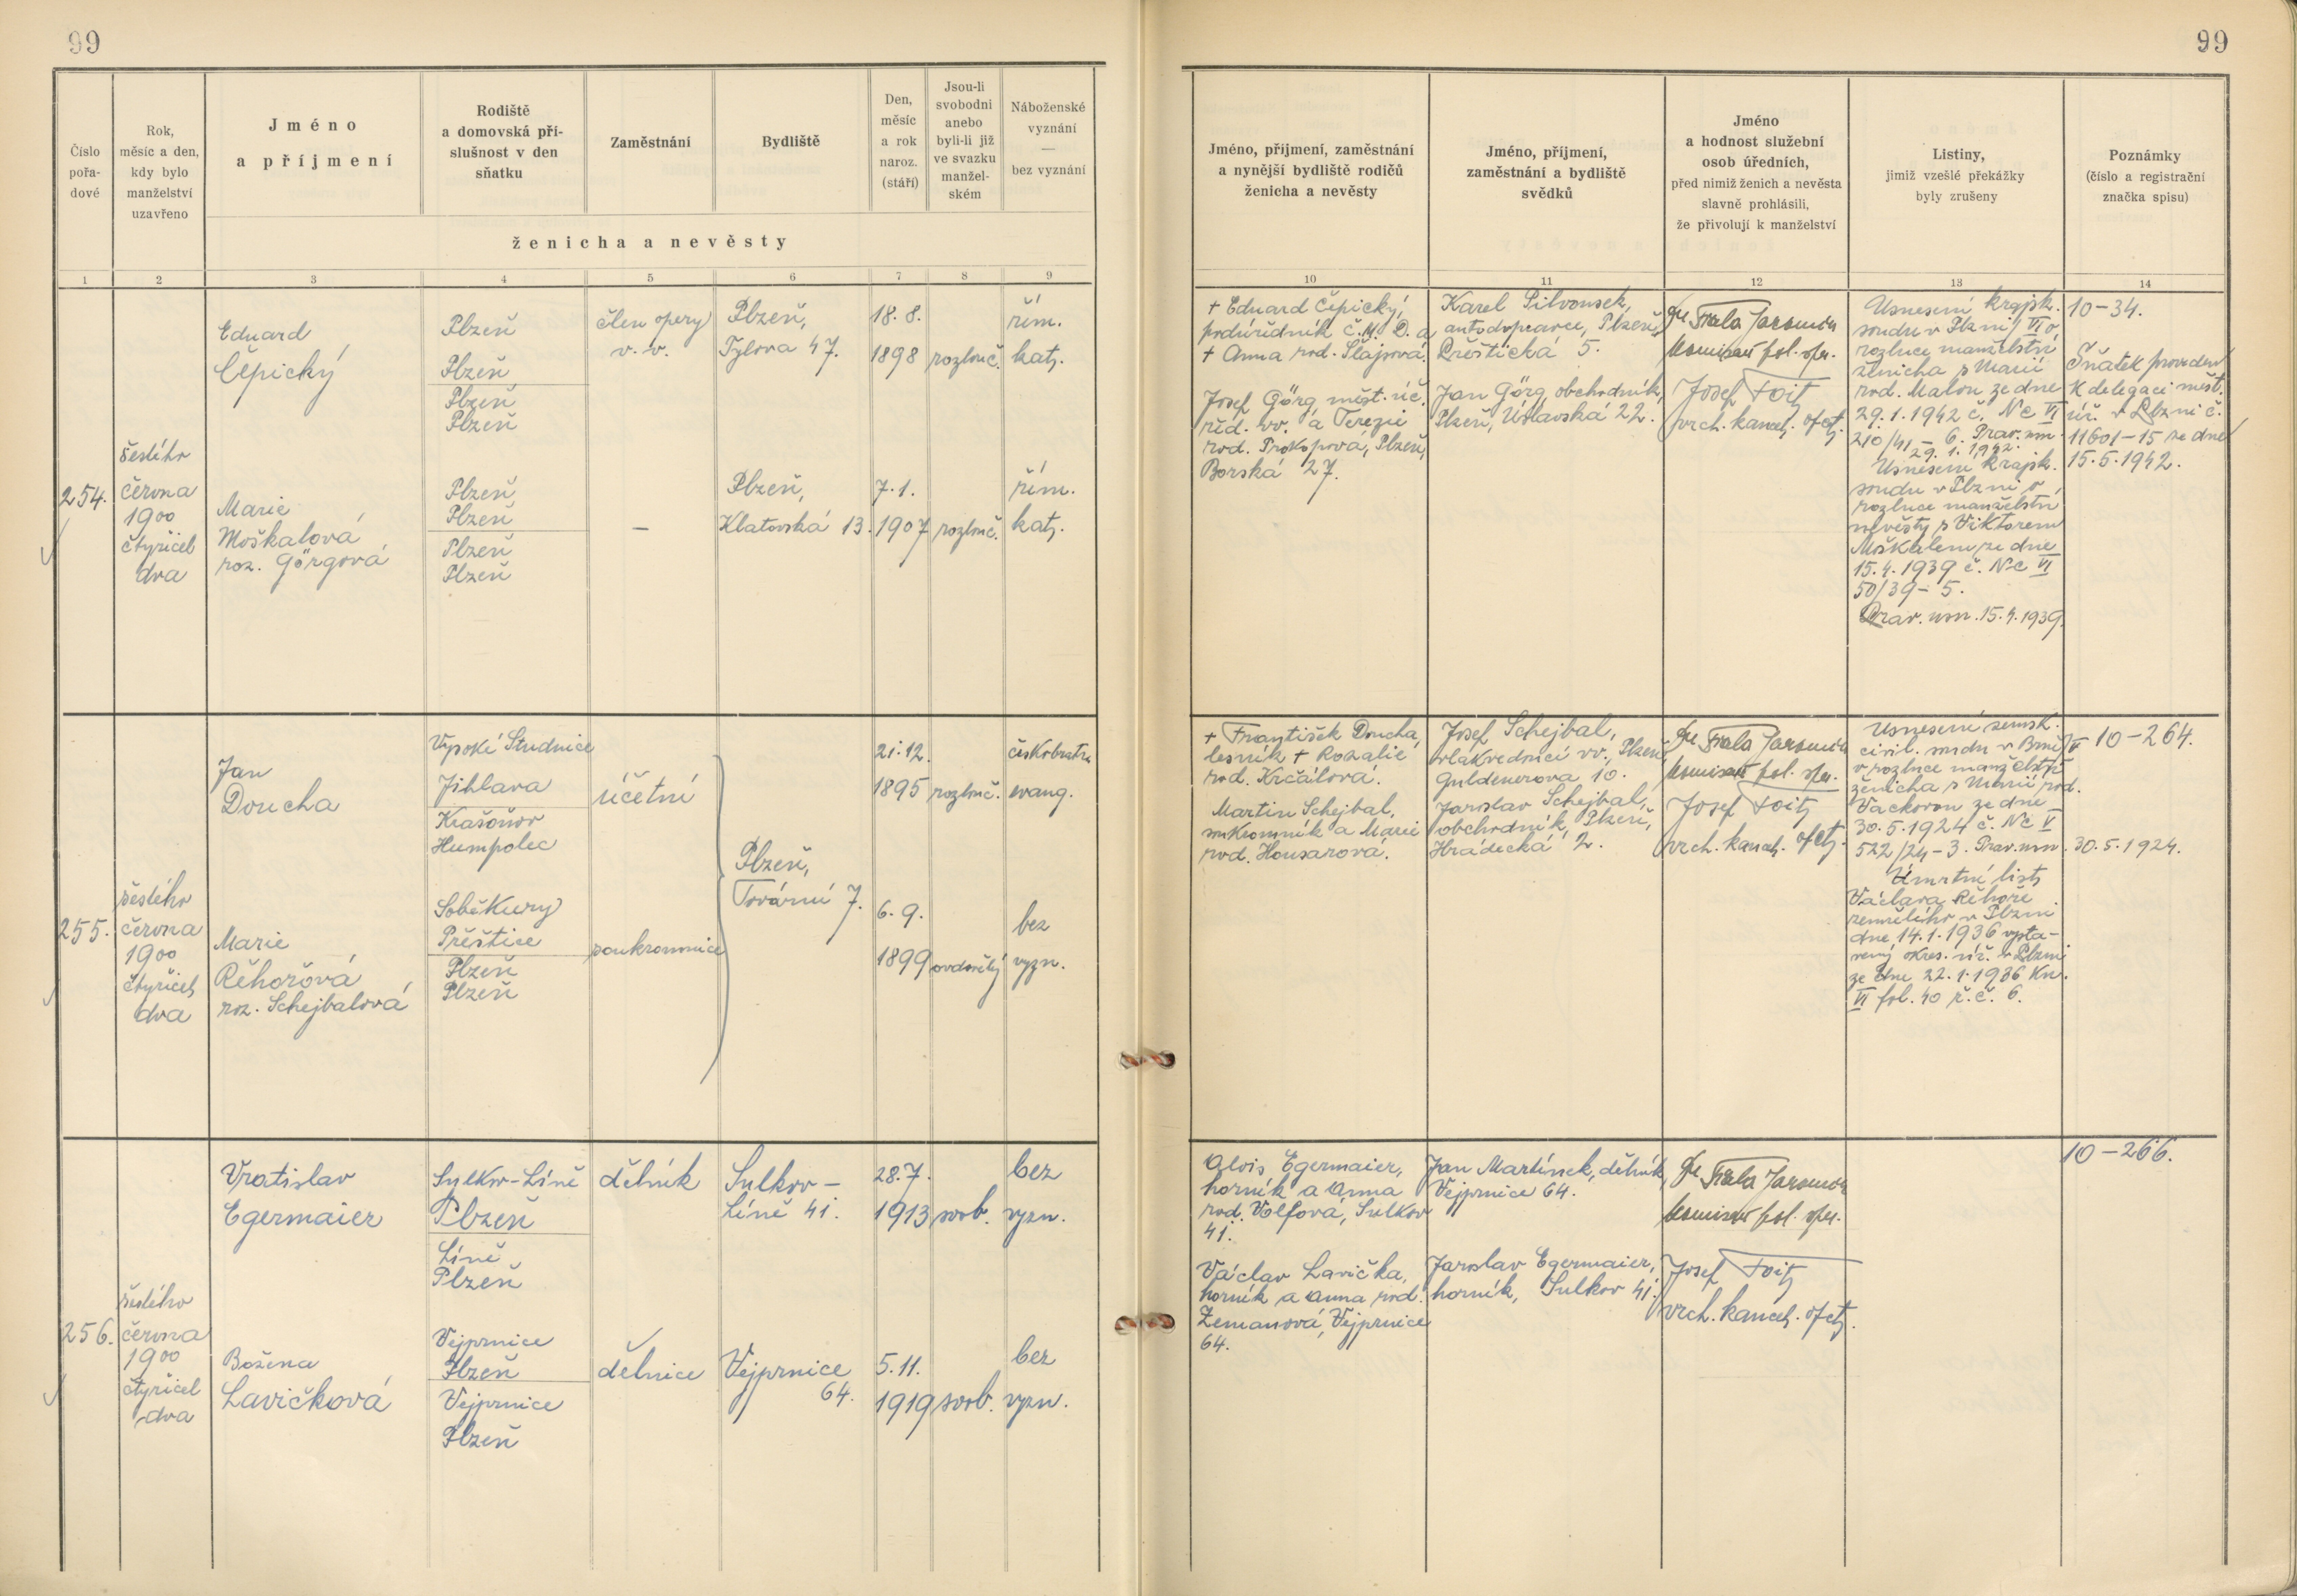 99
99
Číslo pořa- dové
Rok, měsíc a den, kdy bylo manželství uzavřeno
Jméno a příjmení
Rodiště a domovská pří- slušnost v den sňatku
Zaměstnání
Bydliště
Den, měsíc a rok naroz. (stáří)
Jsou-li svobodni anebo byli-li již ve svazku manžel- ském
Náboženské vyznání — bez vyznání
ženicha a nevěsty
Jméno, příjmení, zaměstnání a nynější bydliště rodičů ženicha a nevěsty
Jméno, příjmení, zaměstnání a bydliště svědků
Jméno a hodnost služební osob úředních, před nimiž ženich a nevěsta slavně prohlásili, že přivolují k manželství
Listiny, jimiž vzešlé překážky byly zrušeny
Poznámky (číslo a registrační značka spisu)
1 2 3 4 5 6 7 8 9 10 11 12 13 14
254.
šestého
června
1900
čtyřicet
dva
Eduard
Čepický
Plzeň
Plzeň
Plzeň
Plzeň
člen opery
v. v.
Plzeň,
Tylova 47.
18. 8.
1898
rozlouč.
řím.
kat.
Marie
Moškalová
roz. Görgová
Plzeň
Plzeň
Plzeň
Plzeň
—
Plzeň,
Klatovská 13.
7. 1.
1907
rozlouč.
řím.
kat.
+ Eduard Čepický,
podúředník č. M. D. a
+ Anna rod. Šlajsová.
Josef Görg měst. úč.
řed. vv. a Terezie
rod. Prokopová, Plzeň,
Borská 27.
Karel Pilvousek,
autodopravce, Plzeň,
Přeštická 5.
Jan Görg, obchodník,
Plzeň, Úslavská 22.
Fiala Jaromír
komisař pol. spr.
Josef Foit
vrch. kancel. ofct.
Usnesení krajsk.
soudu v Plzni VI o
rozluce manželství
ženicha s Marií
rod. Malou ze dne
29. 1. 1942 č. Nc VI
210/41 - 6. Prav. usn.
29. 1. 1942.
Usnesení krajsk.
soudu v Plzni o
rozluce manželství
nevěsty s Viktorem
Moškalem ze dne
15. 4. 1939 č. Nc VI
50/39 - 5.
Prav. usn. 15. 4. 1939.
10-34.
Sňatek proveden
k delegaci měst.
úř. v Plzni č.
11601-15 ze dne
15. 5. 1942.
255.
šestého
června
1900
čtyřicet
dva
Jan
Doucha
Vysoké Studnice
Jihlava
Krašoňov
Humpolec
účetní
Plzeň,
Tovární 7.
21. 12.
1895
rozlouč.
českobratr.
evang.
Marie
Řehořová
roz. Schejbalová
Soběkury
Přeštice
Plzeň
Plzeň
soukromnice
6. 9.
1899
ovdovělý
bez
vyzn.
+ František Doucha,
lesník + Rozalie
rod. Krčálová.
Martin Schejbal,
soukromník a Marie
rod. Housarová.
Josef Schejbal,
vlakvedoucí vv., Plzeň,
Guldenerova 10.
Jaroslav Schejbal,
obchodník, Plzeň,
Hrádecká 2.
Fiala Jaromír
komisař pol. spr.
Josef Foit
vrch. kancel. ofct.
Usnesení zemsk.
civil. soudu v Brně V
o rozluce manželství
ženicha s Marií rod.
Vackovou ze dne
30. 5. 1924 č. Nc V
522/24-3. Prav. usn. 30. 5. 1924.
Úmrtní list
Václava Řehoře
zemřelého v Plzni
dne 14. 1. 1936 vysta-
vený okres. úř. v Plzni
ze dne 22. 1. 1936 Kn.
VI fol. 40 ř. č. 6.
10-264.
256.
šestého
června
1900
čtyřicet
dva
Vratislav
Egermaier
Sulkov-Líně
Plzeň
Líně
Plzeň
dělník
Sulkov -
Líně 41.
28. 7.
1913
svob.
bez
vyzn.
Božena
Lavičková
Vejprnice
Plzeň
Vejprnice
Plzeň
dělnice
Vejprnice
64.
5. 11.
1919
svob.
bez
vyzn.
Alois Egermaier,
horník a Anna
rod. Volfová, Sulkov
41.
Václav Lavička,
horník a Anna rod.
Zemanová, Vejprnice
64.
Jan Martínek, dělník,
Vejprnice 64.
Jaroslav Egermaier,
horník, Sulkov 41.
Fiala Jaromír
komisař pol. spr.
Josef Foit
vrch. kancel. ofct.
10-266.